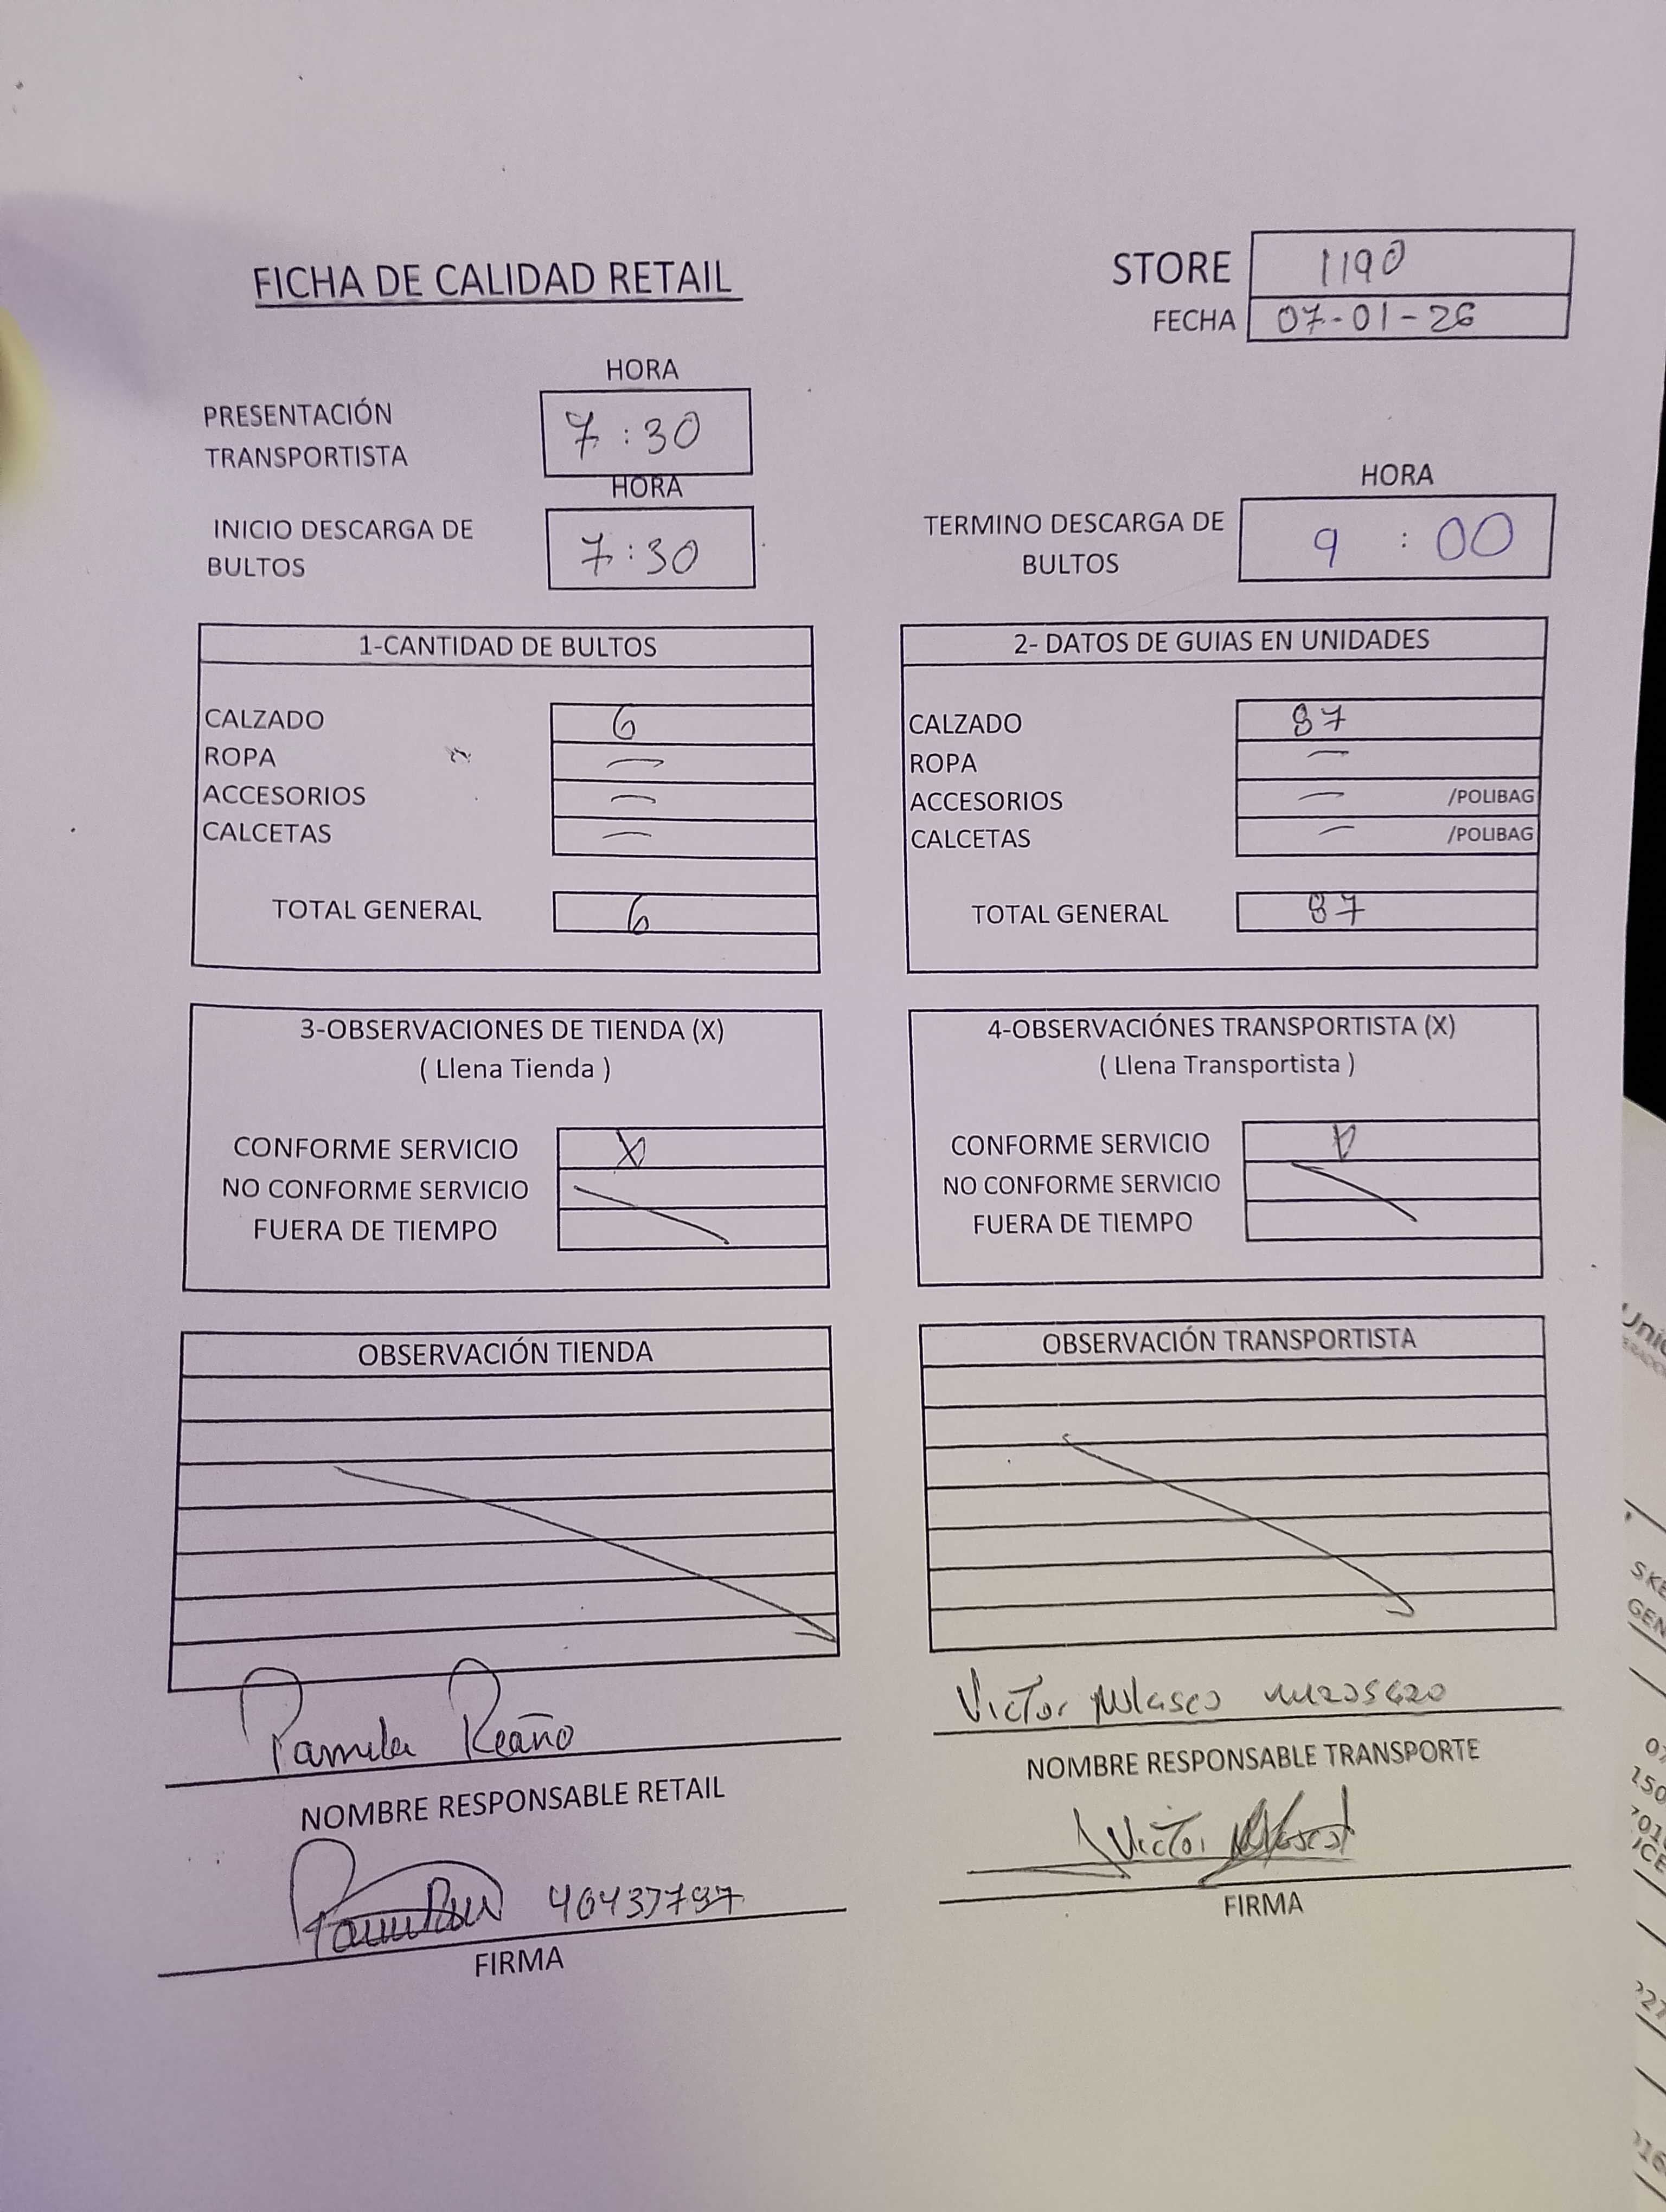 STORE 1190
FICHA DE CALIDAD RETAIL
FECHA 07-01-26
HORA
PRESENTACIÓN
TRANSPORTISTA
7:30
HORA
HORA
INICIO DESCARGA DE
BULTOS
7:30
TERMINO DESCARGA DE
BULTOS
9:00
1-CANTIDAD DE BULTOS
CALZADO 6
ROPA —
ACCESORIOS —
CALCETAS —
TOTAL GENERAL 6
2- DATOS DE GUIAS EN UNIDADES
CALZADO 87
ROPA —
ACCESORIOS — /POLIBAG
CALCETAS — /POLIBAG
TOTAL GENERAL 87
3-OBSERVACIONES DE TIENDA (X)
( Llena Tienda )
CONFORME SERVICIO X
NO CONFORME SERVICIO
FUERA DE TIEMPO
4-OBSERVACIÓNES TRANSPORTISTA (X)
( Llena Transportista )
CONFORME SERVICIO X
NO CONFORME SERVICIO
FUERA DE TIEMPO
OBSERVACIÓN TIENDA
OBSERVACIÓN TRANSPORTISTA
Pamela Reaño
NOMBRE RESPONSABLE RETAIL
FIRMA
Victor
NOMBRE RESPONSABLE TRANSPORTE
Victor
FIRMA